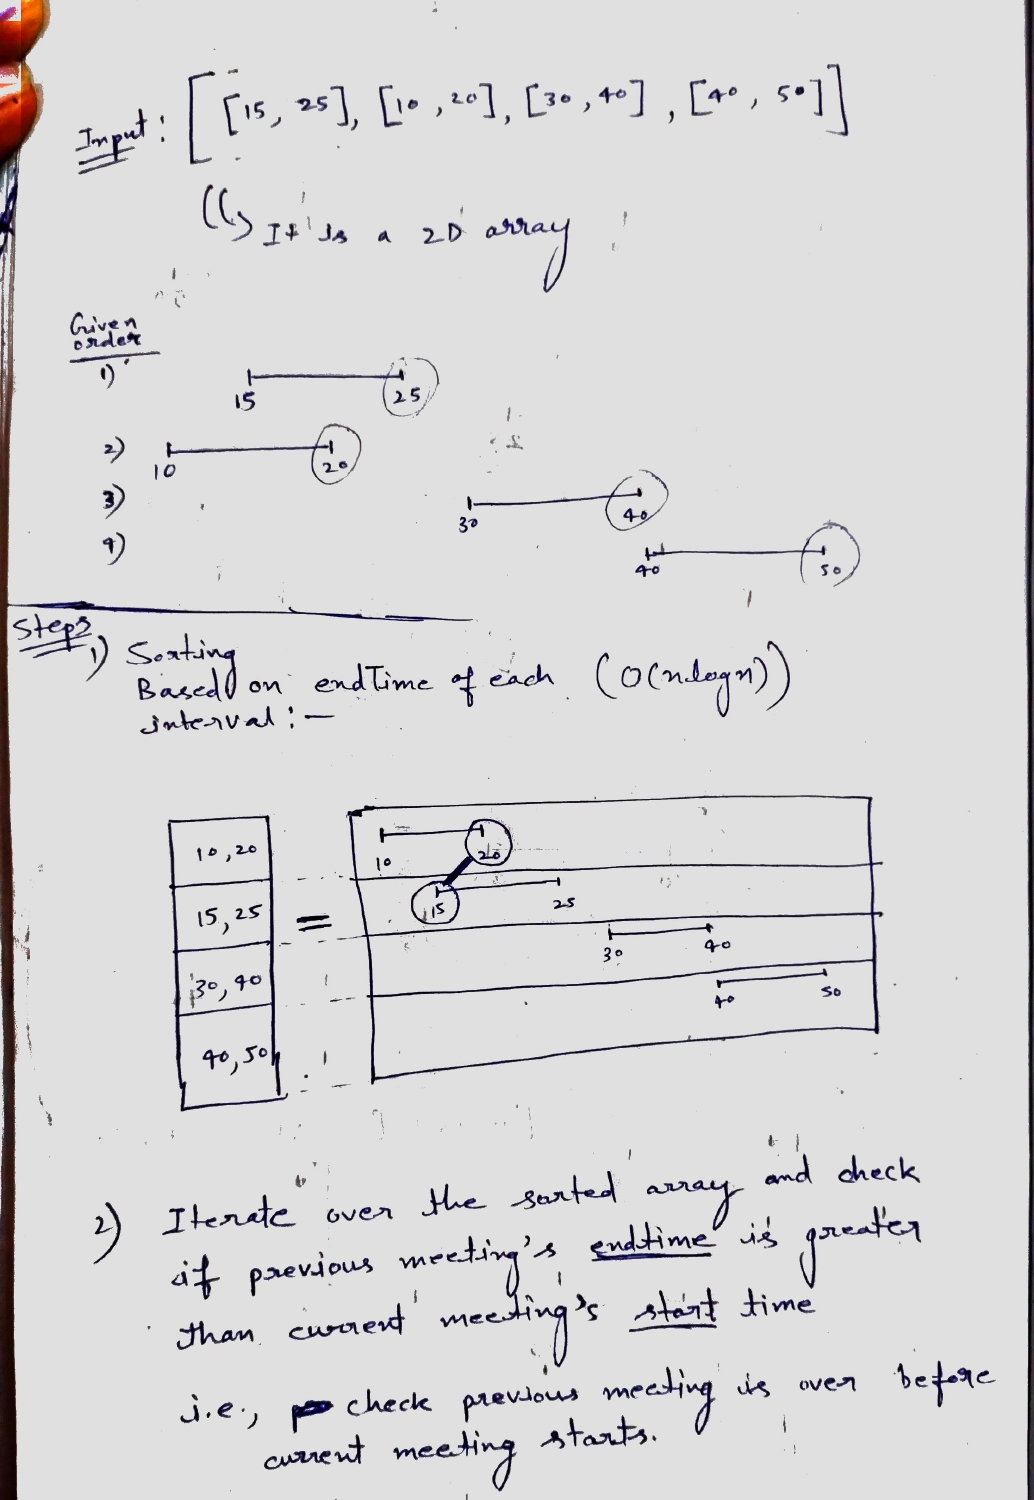 Input: [[15, 25], [10, 20], [30, 40], [40, 50]]
It is a 2D array
Given
order
1)
15 25
2)
10 20
3)
30 40
4)
40 50
Steps
1) Sorting
Based on endTime of each (O(nlogn))
interval:-
10,20
10 20
15,25 =
15 25
30,40
30 40
40,50
40 50
2) Iterate over the sorted array and check
if previous meeting's endtime is greater
than current meeting's start time
i.e., check previous meeting is over before
current meeting starts.